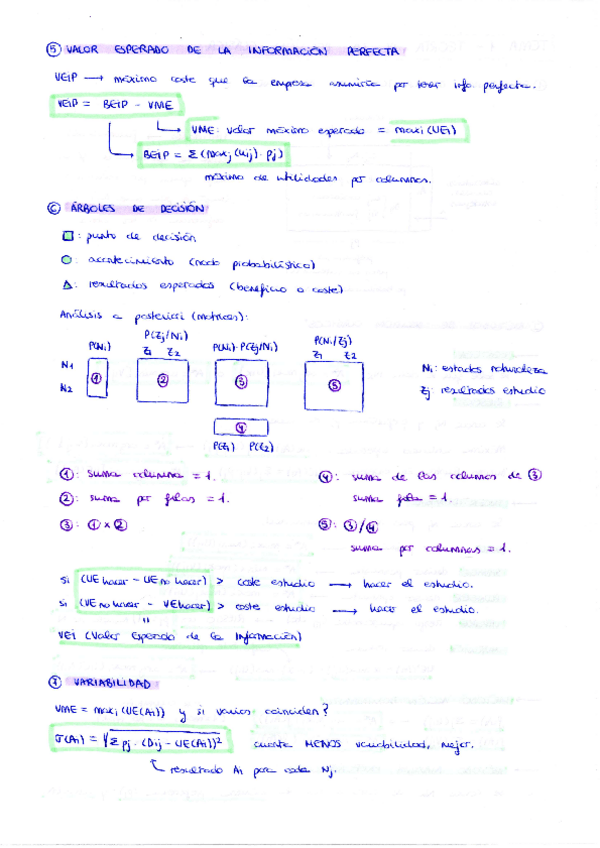 ⑤ VALOR ESPERADO DE LA INFORMACIÓN PERFECTA
VEIP → máximo coste que la empresa asumiría por tener info. perfecta.
VEIP = BEIP - VME
VME: valor máximo esperado = maxi (UEi)
BEIP = Σ (Maxj (uij) · pj)
máximo de utilidades por columnas.
⑥ ÁRBOLES DE DECISIÓN
□: punto de decisión
○: acontecimiento (nodo probabilístico)
△: resultados esperados (beneficio o coste)
Análisis a posteriori (matrices):
P(Ni) P(Zj/Ni) P(Ni)·P(Zj/Ni) P(Ni/Zj)
Z1 Z2 Z1 Z2
N1 ① ② ③ ⑤ Ni: estados naturaleza
N2 Zj: resultados estudio
④
P(Z1) P(Z2)
①: suma columna = 1. ④: suma de las columnas de ③
②: suma por filas = 1. suma fila = 1.
③: ① x ② ⑤: ③/④
suma por columnas = 1.
si (UE hacer - UE no hacer) > coste estudio → hacer el estudio.
si (UE no hacer - UE hacer) > coste estudio → hacer el estudio.
"
VEI (Valor Esperado de la Información)
⑦ VARIABILIDAD
VME = maxi (UE(Ai)) y si varios coinciden?
σ(Ai) = √Σ pj · (Dij - UE(Ai))² cuanta MENOS variabilidad, mejor.
resultado Ai para cada Nj.